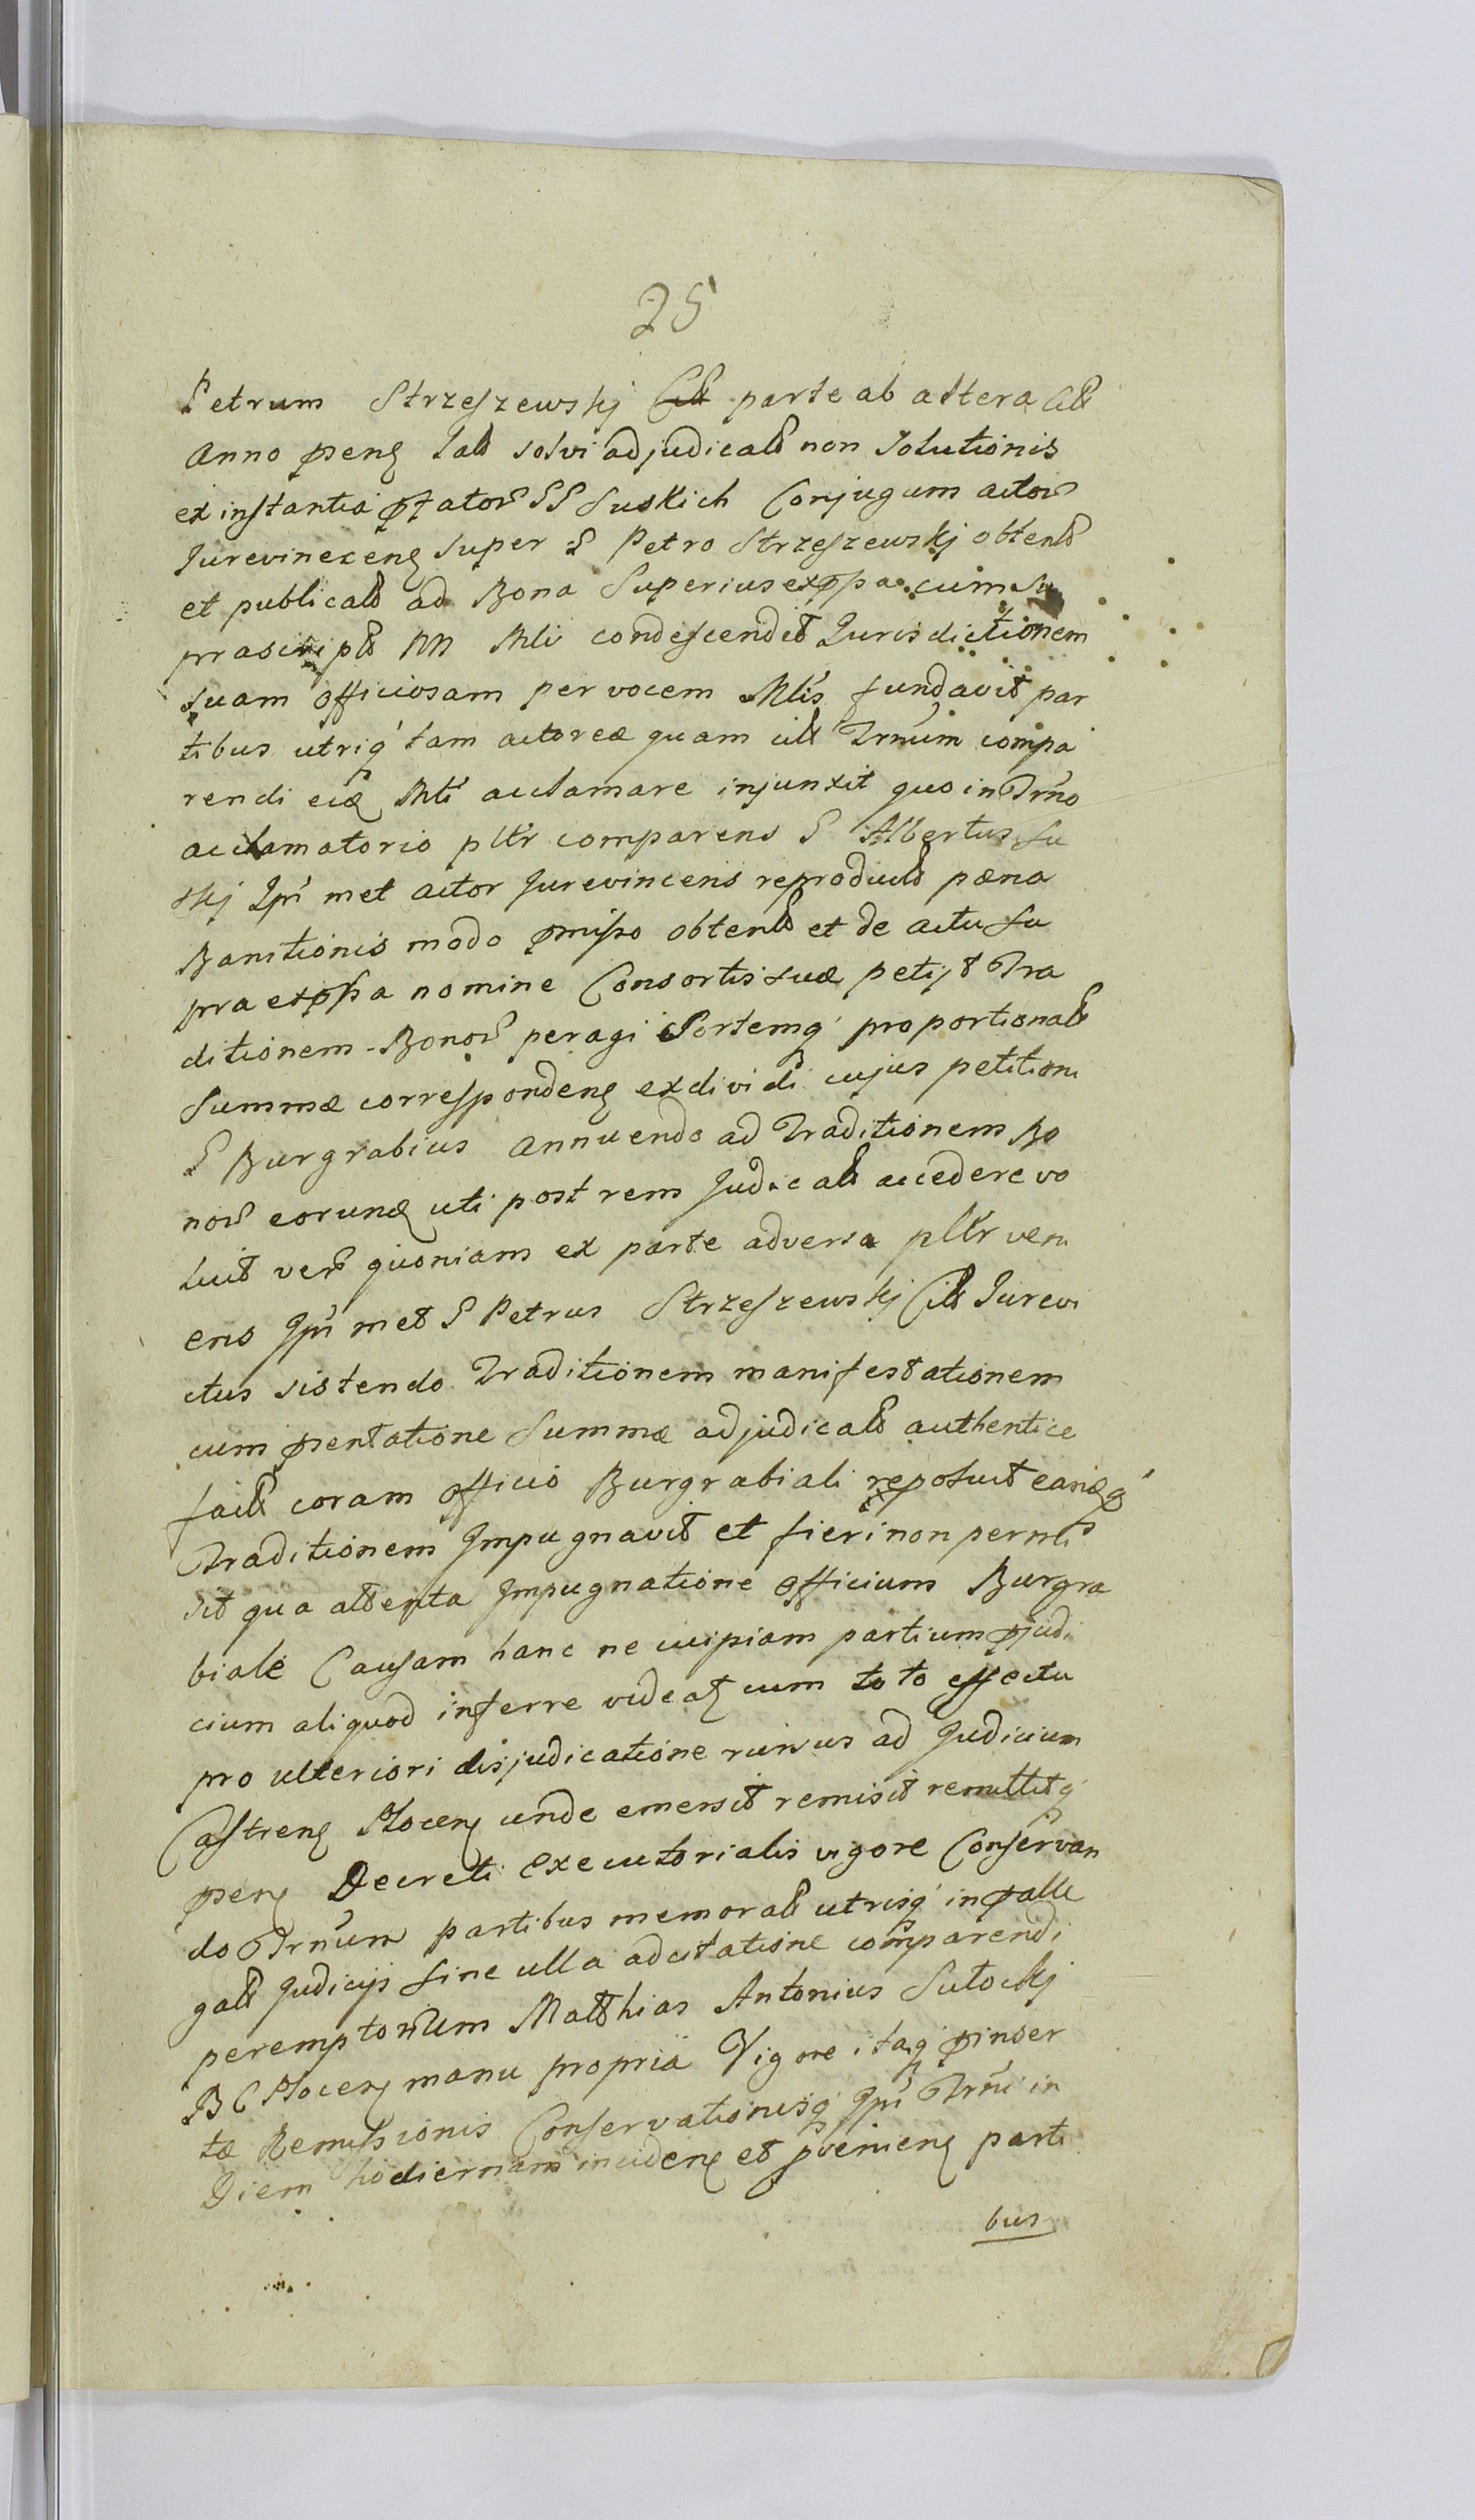 25
Petrum Strzeszewskj parte ab altera Citt
Anno pens latt solvi adjudicatt non Solutionis
ex instantia ptator SS Suskich Conjugum actor
Jurevincens super S Petro Strzeszewskj obtent
et publicatt ad Bona Superius expssa cum Su
prascriptt NN Mli condescendit Jurisdictionem
suam officiosam per vocem Mlis fundavit par
tibus utrisq tam actoreæ quam citt Trnum compa
rendi eidæ Mli acclamare injunxit quo in Trno
acclamatorio pltr comparens S Albertus Su
skj Ips met actor Jurevincens reproductt pæna
Banitionis modo pmisso obtentt et de actu Su
pra expssa nomine Consortis suæ petijt Tra
ditionem Bonor peragi Sortemq proportionatt
Summæ correspondens exdividi cujus petitioni
S Burgrabius annuendo ad Traditionem Bo
nor eorund uti post rem Judicatt accedere vo
luit ver quoniam ex parte adversa pltr veni
ens Ips met S Petrus Strzeszewskj Citt Jurevi
ctus sistendo Traditionem manifestationem
cum pentatione Summæ adjudicatt authentice
factt coram officio Burgrabiali reposuit eandeq
Traditionem Impugnavit et fieri non permi
sit qua attenta Impugnatione officium Burgra
biale Causam hanc ne cuipiam partium pjudi
cium aliquod inferre videat cum toto effectu
pro ulteriori disjudicatione rursus ad Judicium
Castrens Plocens unde emersit remisit remittitq
pens Decreti executorialis vigore Conservan
do Trnum partibus memoratt utrisq in ptalle
gatt Judicijs sine ulla adcitatione comparendi
peremptorium Matthias Antonius Sutockj
B C Plocens manu propria Vigore itaq pinser
tæ Remissionis Conservationisq Ips Trni in
Diem hodiernam incidens et pveniens parti
bus